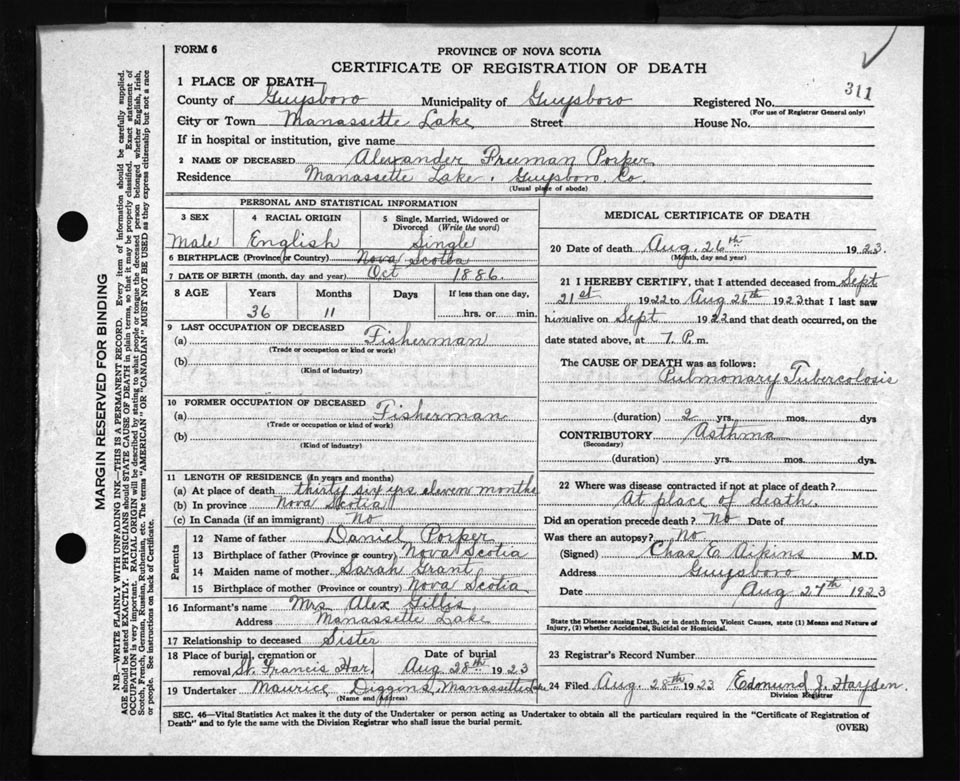 FORM 6
PROVINCE OF NOVA SCOTIA
CERTIFICATE OF REGISTRATION OF DEATH
311
1 PLACE OF DEATH—
County of Guysboro Municipality of Guysboro Registered No.
(For use of Registrar General only)
City or Town Manassette Lake Street House No.
If in hospital or institution, give name
2 NAME OF DECEASED Alexander Freeman Porper
Residence Manassette Lake. Guysboro. Co.
(Usual place of abode)
PERSONAL AND STATISTICAL INFORMATION
3 SEX 4 RACIAL ORIGIN 5 Single, Married, Widowed or Divorced (Write the word)
Male English Single
6 BIRTHPLACE (Province or Country) Nova Scotia
7 DATE OF BIRTH (month, day and year) Oct 1886.
8 AGE Years Months Days If less than one day,
36 11 hrs. or min.
9 LAST OCCUPATION OF DECEASED
(a) Fisherman
(Trade or occupation or kind or work)
(b)
(Kind of industry)
10 FORMER OCCUPATION OF DECEASED
(a) Fisherman
(Trade or occupation or kind or work)
(b)
(Kind of industry)
11 LENGTH OF RESIDENCE (In years and months)
(a) At place of death thirty six yrs eleven months
(b) In province Nova Scotia
(c) In Canada (if an immigrant) No
Parents
12 Name of father Daniel Porper
13 Birthplace of father (Province or country) Nova Scotia
14 Maiden name of mother Sarah Grant
15 Birthplace of mother (Province or country) Nova Scotia
16 Informant's name Mrs Alex Gillis
Address Manassette Lake
17 Relationship to deceased Sister
18 Place of burial, cremation or removal St. Francis Har. Date of burial Aug 28th 1923
19 Undertaker Maurice Diggins, Manassette Lake
(Name and Address)
MEDICAL CERTIFICATE OF DEATH
20 Date of death Aug. 26th 1923.
(Month, day and year)
21 I HEREBY CERTIFY, that I attended deceased from Sept
21st 1922 to Aug 26th 1923 that I last saw
him alive on Sept 1922 and that death occurred, on
date stated above, at 7. P.m.
The CAUSE OF DEATH was as follows:
Pulmonary Tubercolosis
(duration) 2 yrs. mos. dys
CONTRIBUTORY Asthma
(Secondary)
(duration) yrs. mos. dys.
22 Where was disease contracted if not at place of death?
At place of death.
Did an operation precede death? No Date of
Was there an autopsy? No
(Signed) Chas E Aikins M.D.
Address Guysboro
Date Aug 27th 1923
State the Disease causing Death, or in death from Violent Causes, state (1) Means and Nature of
Injury, (2) whether Accidental, Suicidal or Homicidal.
23 Registrar's Record Number
24 Filed Aug. 28th 1923 Edmund J. Hayden.
Division Registrar
SEC. 46—Vital Statistics Act makes it the duty of the Undertaker or person acting as Undertaker to obtain all the particulars required in the "Certificate of Registration of
Death" and to fyle the same with the Division Registrar who shall issue the burial permit.
(OVER)
MARGIN RESERVED FOR BINDING
N.B.—WRITE PLAINLY WITH UNFADING INK—THIS IS A PERMANENT RECORD. Every item of information should be carefully supplied.
AGE should be stated EXACTLY. PHYSICIANS should STATE CAUSE OF DEATH in plain terms, so that it may be properly classified. Exact statement of
OCCUPATION is very important. RACIAL ORIGIN will be described by stating to what people or tongue the deceased person belonged whether English, Irish,
Scotch, French, German, Russian, Ruthenian, etc. The terms "AMERICAN" OR "CANADIAN" MUST NOT BE USED as they express citizenship but not a race
or people. See instructions on back of Certificate.